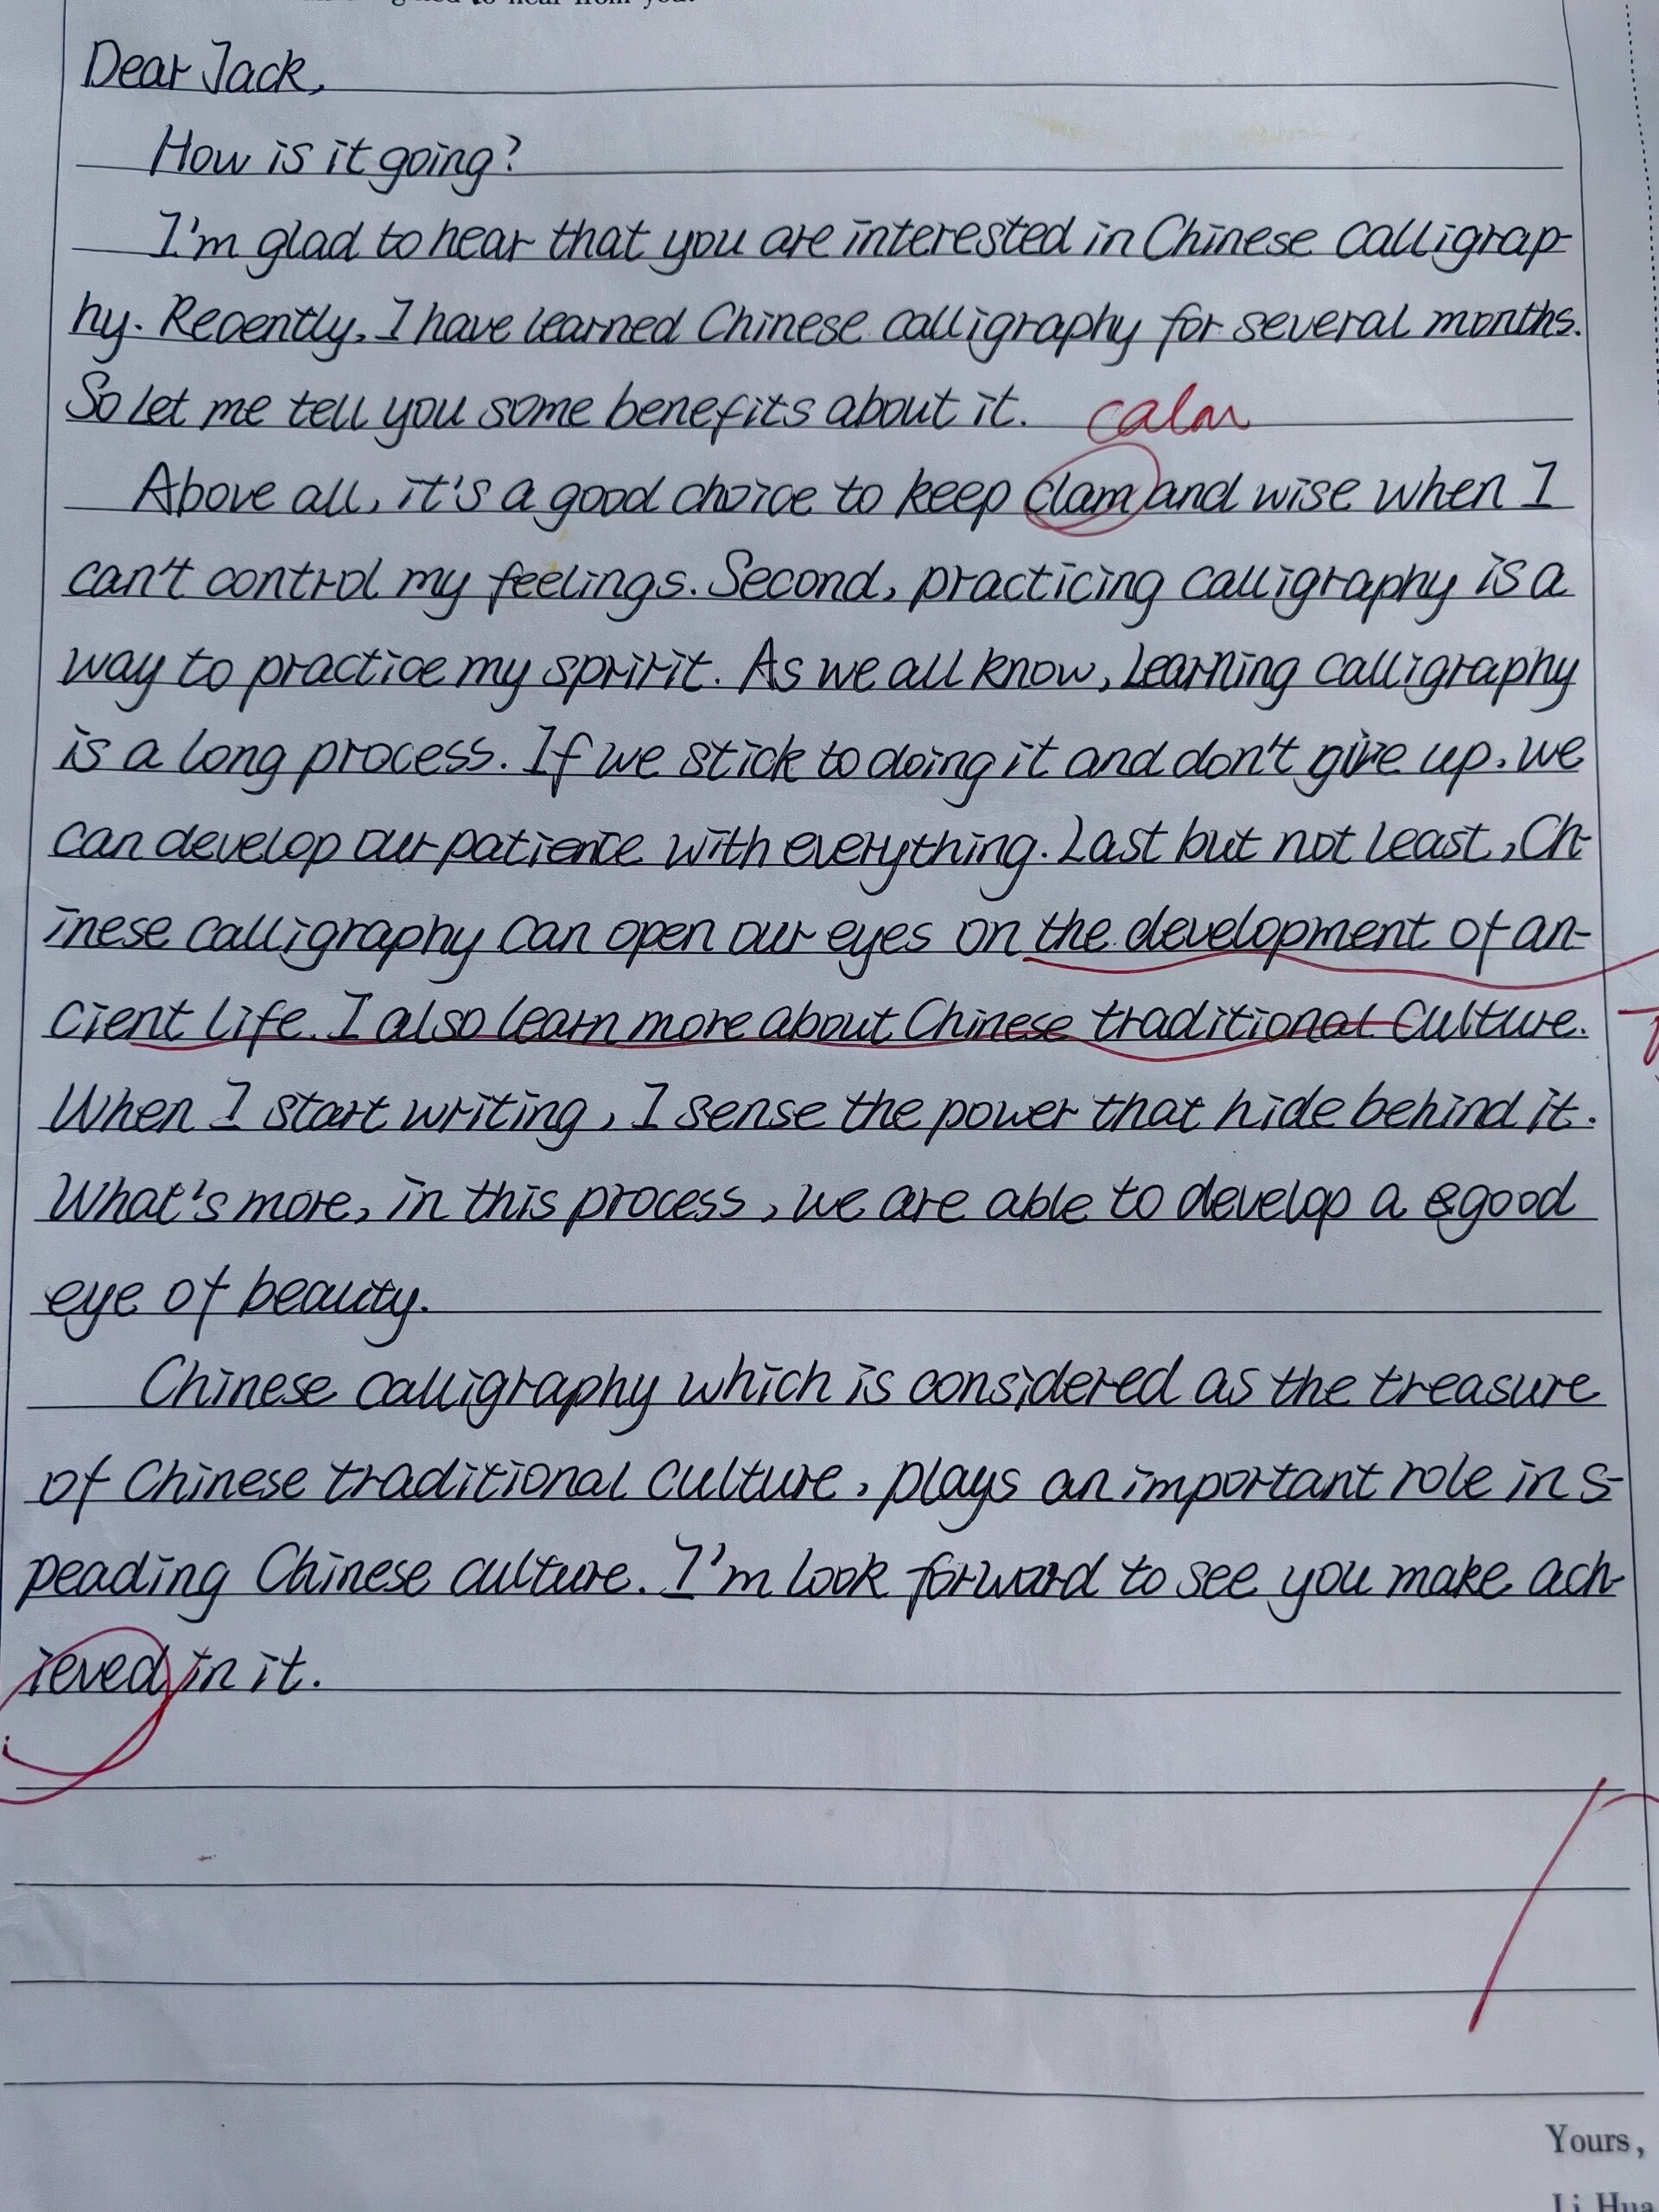 to hear from you.
Dear Jack,
How is it going?
I'm glad to hear that you are interested in Chinese calligrap-
hy. Recently, I have learned Chinese calligraphy for several months.
So let me tell you some benefits about it. calm
Above all, it's a good choice to keep clam and wise when I
can't control my feelings. Second, practicing calligraphy is a
way to practice my spririt. As we all know, learning calligraphy
is a long process. If we stick to doing it and don't give up, we
can develop our patience with everything. Last but not least, Ch-
inese calligraphy can open our eyes on the development of an-
cient life. I also learn more about Chinese traditional culture.
When I start writing, I sense the power that hide behind it.
What's more, in this process, we are able to develop a good
eye of beauty.
Chinese calligraphy which is considered as the treasure
of Chinese traditional culture, plays an important role in s-
peading Chinese culture. I'm look forward to see you make ach-
ieved in it.
Yours,
Li Hua